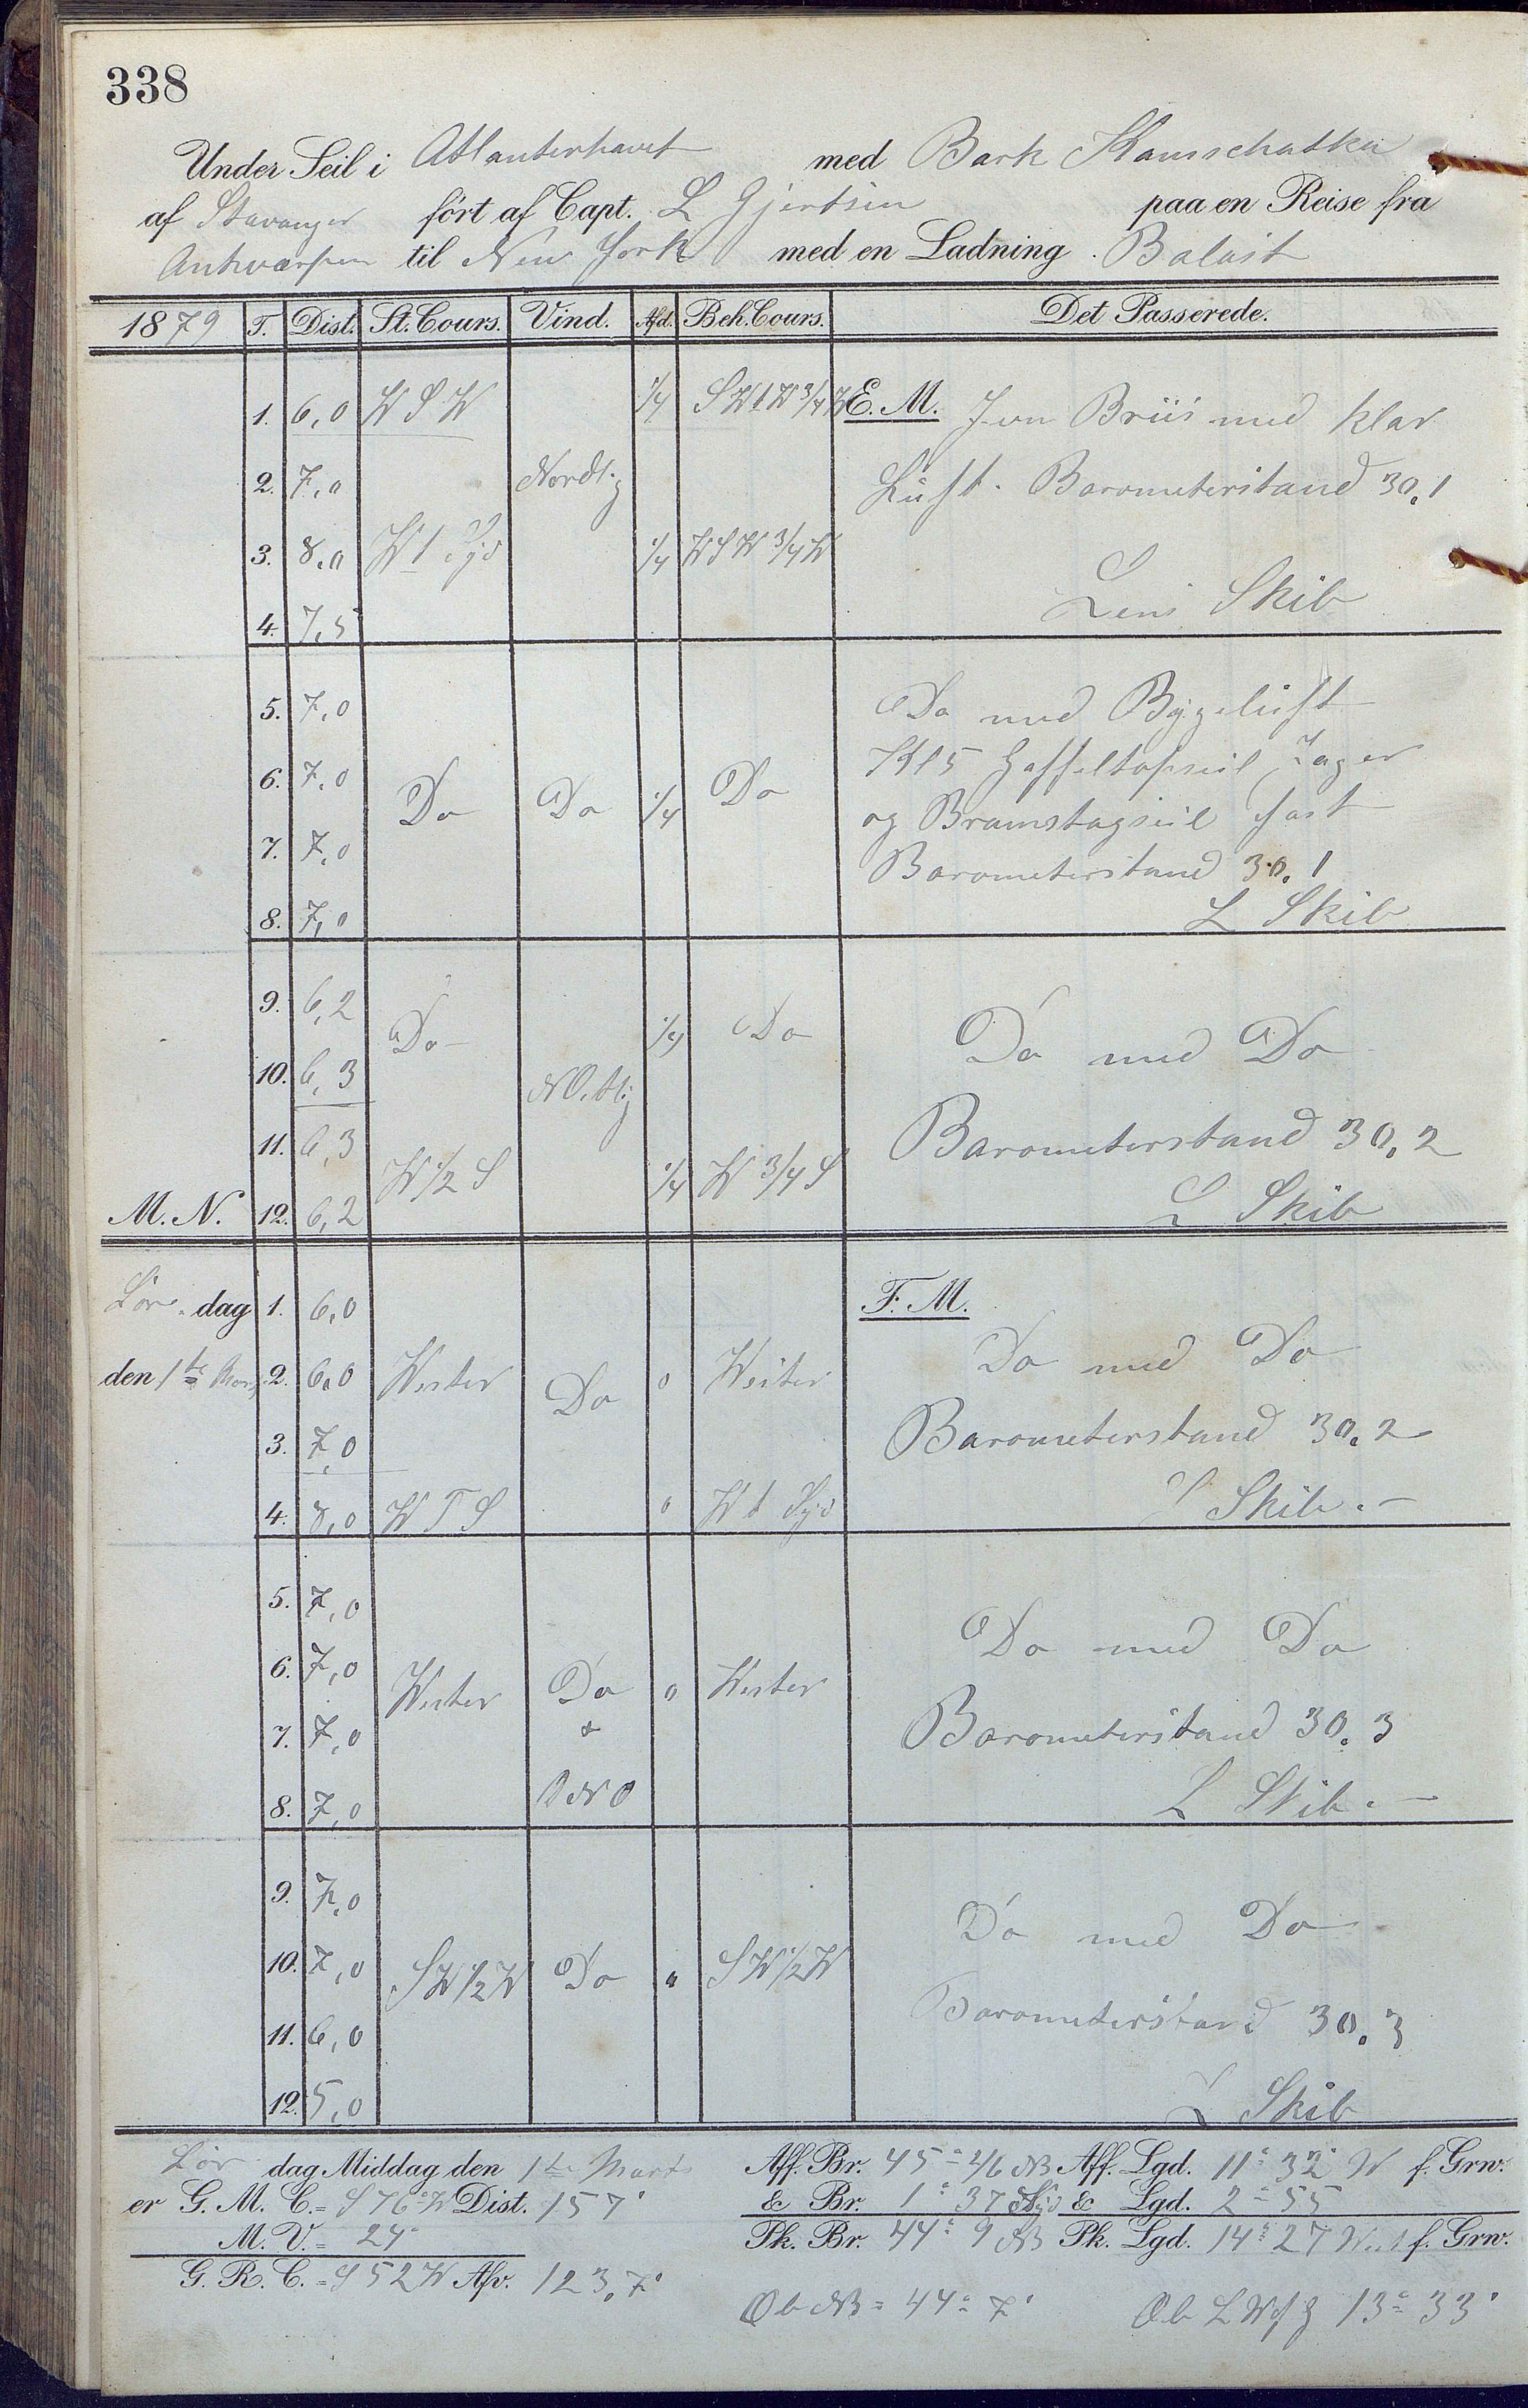 338
Under Seil i Atlanterhavet med Bark Kamschatka
af Stavanger ført af Capt. L Gjertsen paa en Reise fra
Antwarpen til New York med en Ladning Balast
1879 T. Dist. St. Cours. Vind. Afd. Beh. Cours. Det Passerede.
1. 6,0 W S W 1/4 S W t W 3/4 W E. M. Jvn Briis med klar
2. 7,0 Nordlig Luft. Barometerstand 30,1
3. 8,0 W t Syd 1/4 W S W 3/4 W
Lens Skib
4. 7,5
5. 7,0 Do med Bygeluft
6. 7,0 Do Do 1/4 Do Kl 5 Gaffeltopseil Jager
og Bramstagseil fast
7. 7,0 Barometerstand 30,1
8. 7,0 L Skib
9. 6,2 Do 1/4 Do Do med Do
10. 6,3 NOstlig
11. 6,3 Barometerstand 30,2
W 1/2 S 1/4 W 3/4 S
M. N. 12. 6,2 L Skib
Lør dag 1. 6,0 F. M.
den 1te Marts 2. 6,0 Wester Do 0 Wester Do med Do
3. 7,0 Barometerstand 30,2
4. 8,0 W T S 0 W t Syd L Skib. —
5. 7,0
6. 7,0 Wester Do 0 Wester Do med Do
7. 7,0 & Barometerstand 30,3
8. 7,0 ONO L Skib. —
9. 7,0 Do med Do
10. 7,0 SW 1/2 W Do " SW 1/2 W
11. 6,0 Barometerstand 30,3
12. 5,0 L Skib
Lør dag Middag den 1te Marts Aff. Br. 45° 46 NB Aff. Lgd. 11° 32' W f. Grw.
er G. M. C. = S 76° W Dist. 157' & Br. 1° 37 Syd & Lgd. 2° 55
M. V. = 24° Pk. Br. 44° 9 NB Pk. Lgd. 14° 27 West f. Grw.
G. R. C. = S 52 W Afv. 123,7'
Ob NB = 44° 7' Ob L W f G 13° 33'